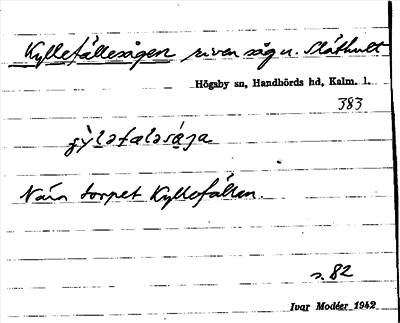 Kyllefällesågen riven såg u. Slåthult
Högsby sn, Handbörds hd, Kalm. l.
383
Nära torpet Kyllefällan.
s. 82
Ivar Modéer 1942